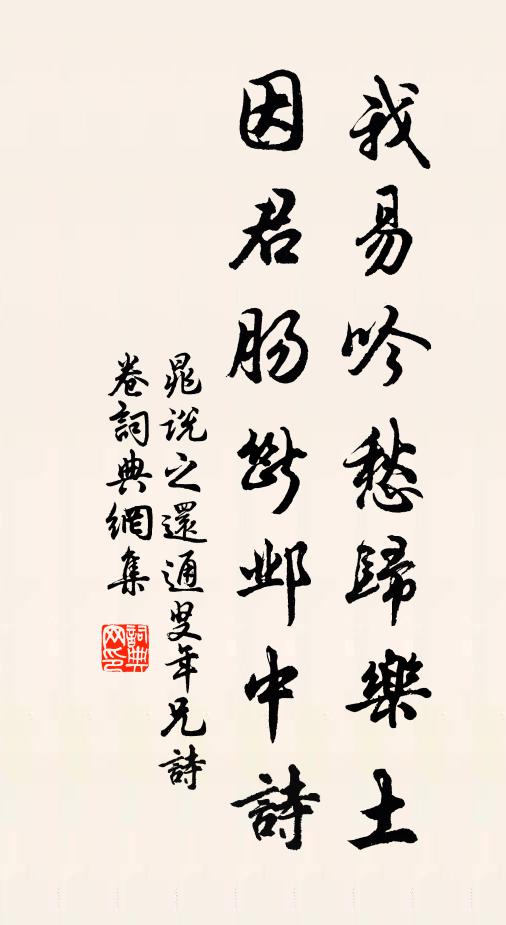 我易吟愁歸樂土
因君肠斷邺中詩
晁说之還通叟年兄詩
卷詞典網集
詞典
网印